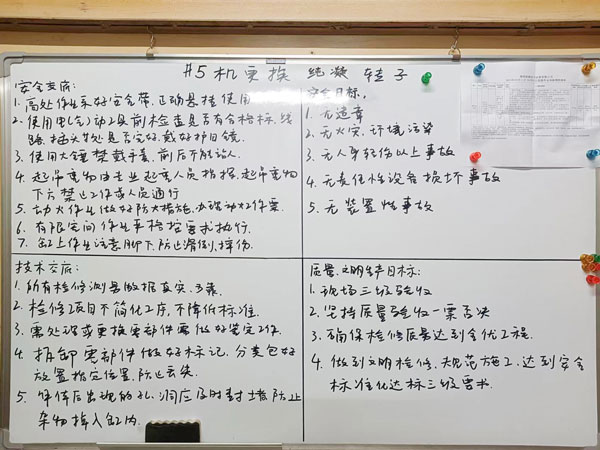 #5机更换 纯凝 转子
安全交底:
1. 高处作业系好安全带,正确悬挂使用
2. 使用电(气)动工具前检查是否有合格标,线
路、插头等处是否完好,戴好护目镜
3. 使用大锤禁戴手套,前后不能站人
4. 起吊重物由专业起重人员指挥,起吊重物
下方禁止工作或人员通行
5. 动火作业做好防火措施,办理动火工作票.
6. 有限空间作业严格按要求执行.
7. 缸上作业注意脚下,防止滑倒,摔伤.
安全目标.
1. 无违章
2. 无火灾、环境污染
3. 无人身轻伤以上事故
4. 无责任性设备损坏事故
5. 无装置性事故
技术交底:
1. 所有检修测量数据真实、可靠
2. 检修项目不简化工序,不降低标准.
3. 需处理或更换零部件需做好鉴定工作.
4. 拆卸零部件做好标记、分类包好
放置指定位置,防止丢失
5. 解体后出现的孔、洞应及时封堵防止
杂物掉入缸内.
质量、文明生产目标:
1. 现场三级验收
2. 坚持质量验收一票否决
3. 确保检修质量达到全优工程
4. 做到文明检修、规范施工,达到安全
标准化达标三级要求.